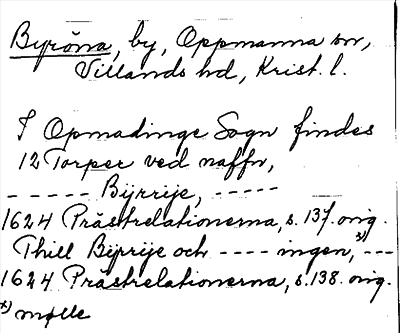 Byröna, by, Oppmanna sn,
Villands hd, Krist. l.
I Opmadinge Sogn findes
12 Torper ved naffn,
- - - - - Bÿrrije, - - - - -
1624 Prästrelationerna, s. 137. orig.
Thill Bÿrrije och - - - - ingen, x) - - -
1624 Prästrelationerna, s. 138. orig.
x) mølle